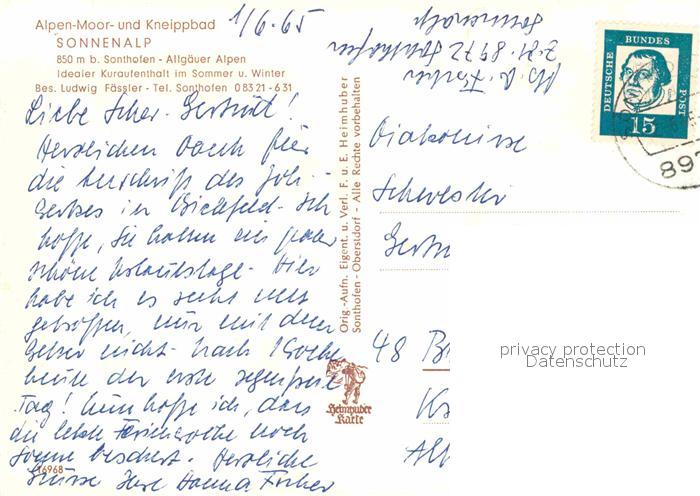 Alpen-Moor- und Kneippbad
SONNENALP
850 m b. Sonthofen - Allgäuer Alpen
Idealer Kuraufenthalt im Sommer u. Winter
Bes. Ludwig Fässler - Tel. Sonthofen 08321-631
1/6.65
Liebe Schw. Gertrud!
Herzlichen Dank für
die des
in Bielefeld. Ich
hoffe, Sie hatten ein paar
schöne Urlaubstage. Hier
habe ich es recht
getroffen, nur mit dem
Wetter nicht. Nach 1 Woche
heute der erste regenfreie
Tag! Nun hoffe ich, dass
die letzte Ferienwoche noch
Sonne beschert. Herzliche
Grüsse Ihre Hanna Fischer
16968
Orig.-Aufn. Eigent. u. Verl. F. u. E. Heimhuber
Sonthofen - Oberstdorf - Alle Rechte vorbehalten
Heimhuber
Karte
Fischer
z.Zt. 8972 Sonthofen
Sonnenalp
DEUTSCHE BUNDESPOST
15
897
Diakonisse
Schwester
Gertru
48 B
privacy protection
Datenschutz